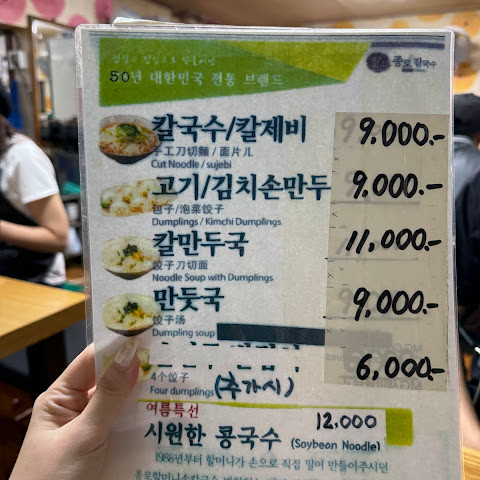 50년 대한민국 전통 브랜드
종로 칼국수
칼국수/칼제비 9,000.-
手工刀切麵 / 面片儿
Cut Noodle / sujebi
고기/김치손만두 9,000.-
包子/泡菜饺子
Dumplings / Kimchi Dumplings
칼만두국 11,000.-
饺子刀切面
Noodle Soup with Dumplings
만둣국 9,000.-
饺子汤
Dumpling soup
6,000.-
4个饺子
Four dumplings (추가시)
여름특선 12,000
시원한 콩국수 (Soybean Noodle)
1988년부터 할머니가 손으로 직접 말이 만들어주시던